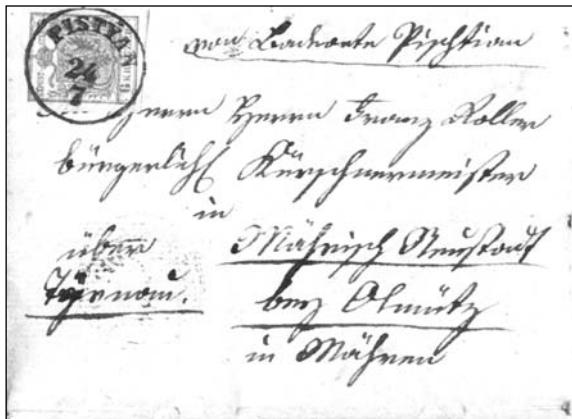 PISTYAN
24
7
6 KREUZ
von Badeorte Pischtian
Herrn Herrn Franz Koller
bürgerlich Kürschnermeister
in
über Mährisch Neustadt
Tyrnau. bey Olmütz
in Mähren